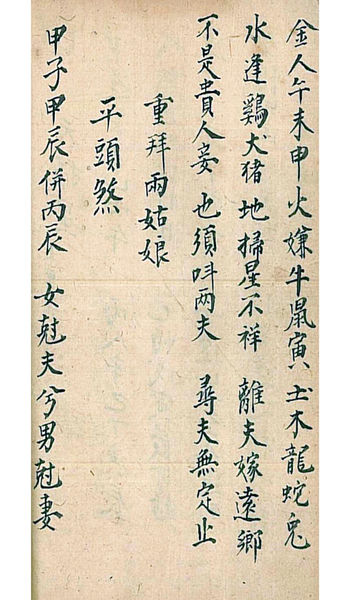 金人午未申火嫌牛鼠寅土木龍蛇兎
水逢鷄犬猪地掃星不祥 離夫嫁遠鄉
不是貴人妾也須呌两夫 尋夫無定止
重拜兩姑娘
平頭煞
甲子甲辰併丙辰 女尅夫兮男尅妻